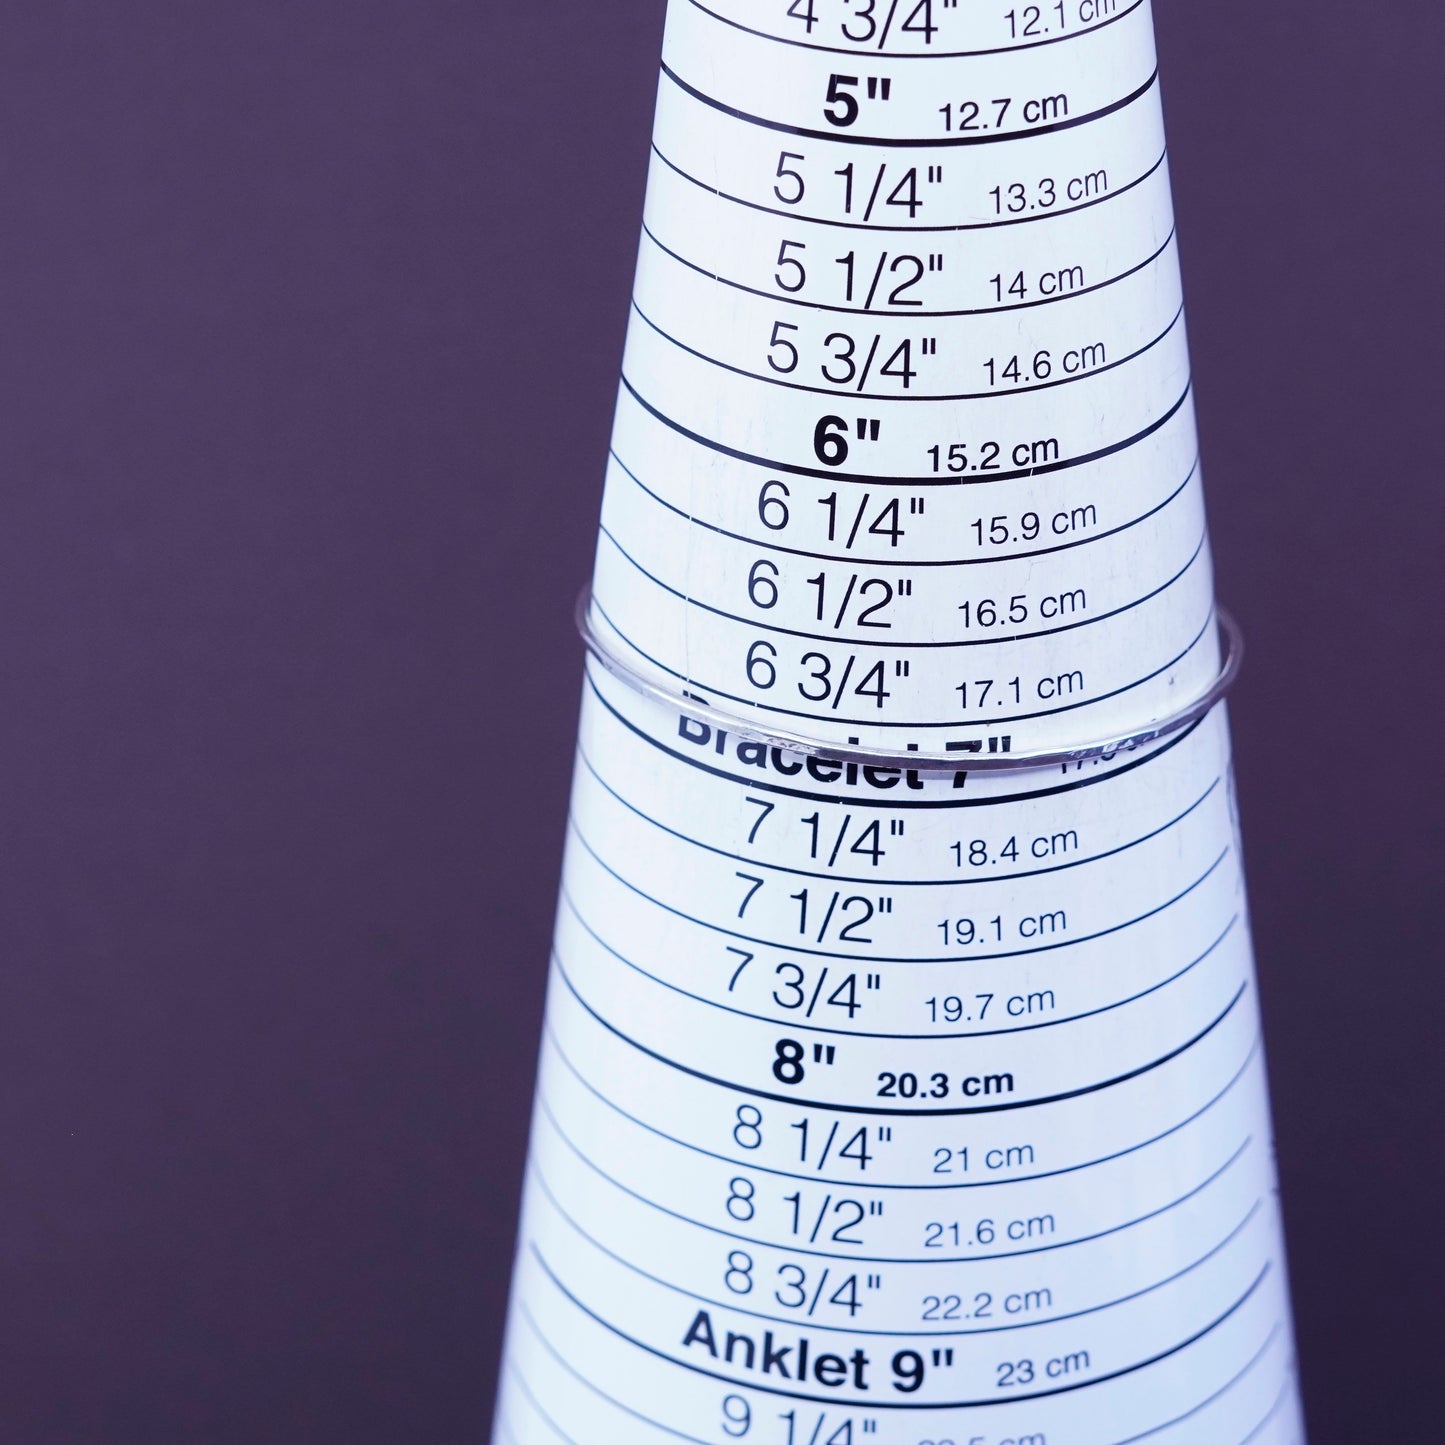 4 3/4" 12.1 cm
5" 12.7 cm
5 1/4" 13.3 cm
5 1/2" 14 cm
5 3/4" 14.6 cm
6" 15.2 cm
6 1/4" 15.9 cm
6 1/2" 16.5 cm
6 3/4" 17.1 cm
Bracelet 7"
7 1/4" 18.4 cm
7 1/2" 19.1 cm
7 3/4" 19.7 cm
8" 20.3 cm
8 1/4" 21 cm
8 1/2" 21.6 cm
8 3/4" 22.2 cm
Anklet 9" 23 cm
9 1/4"